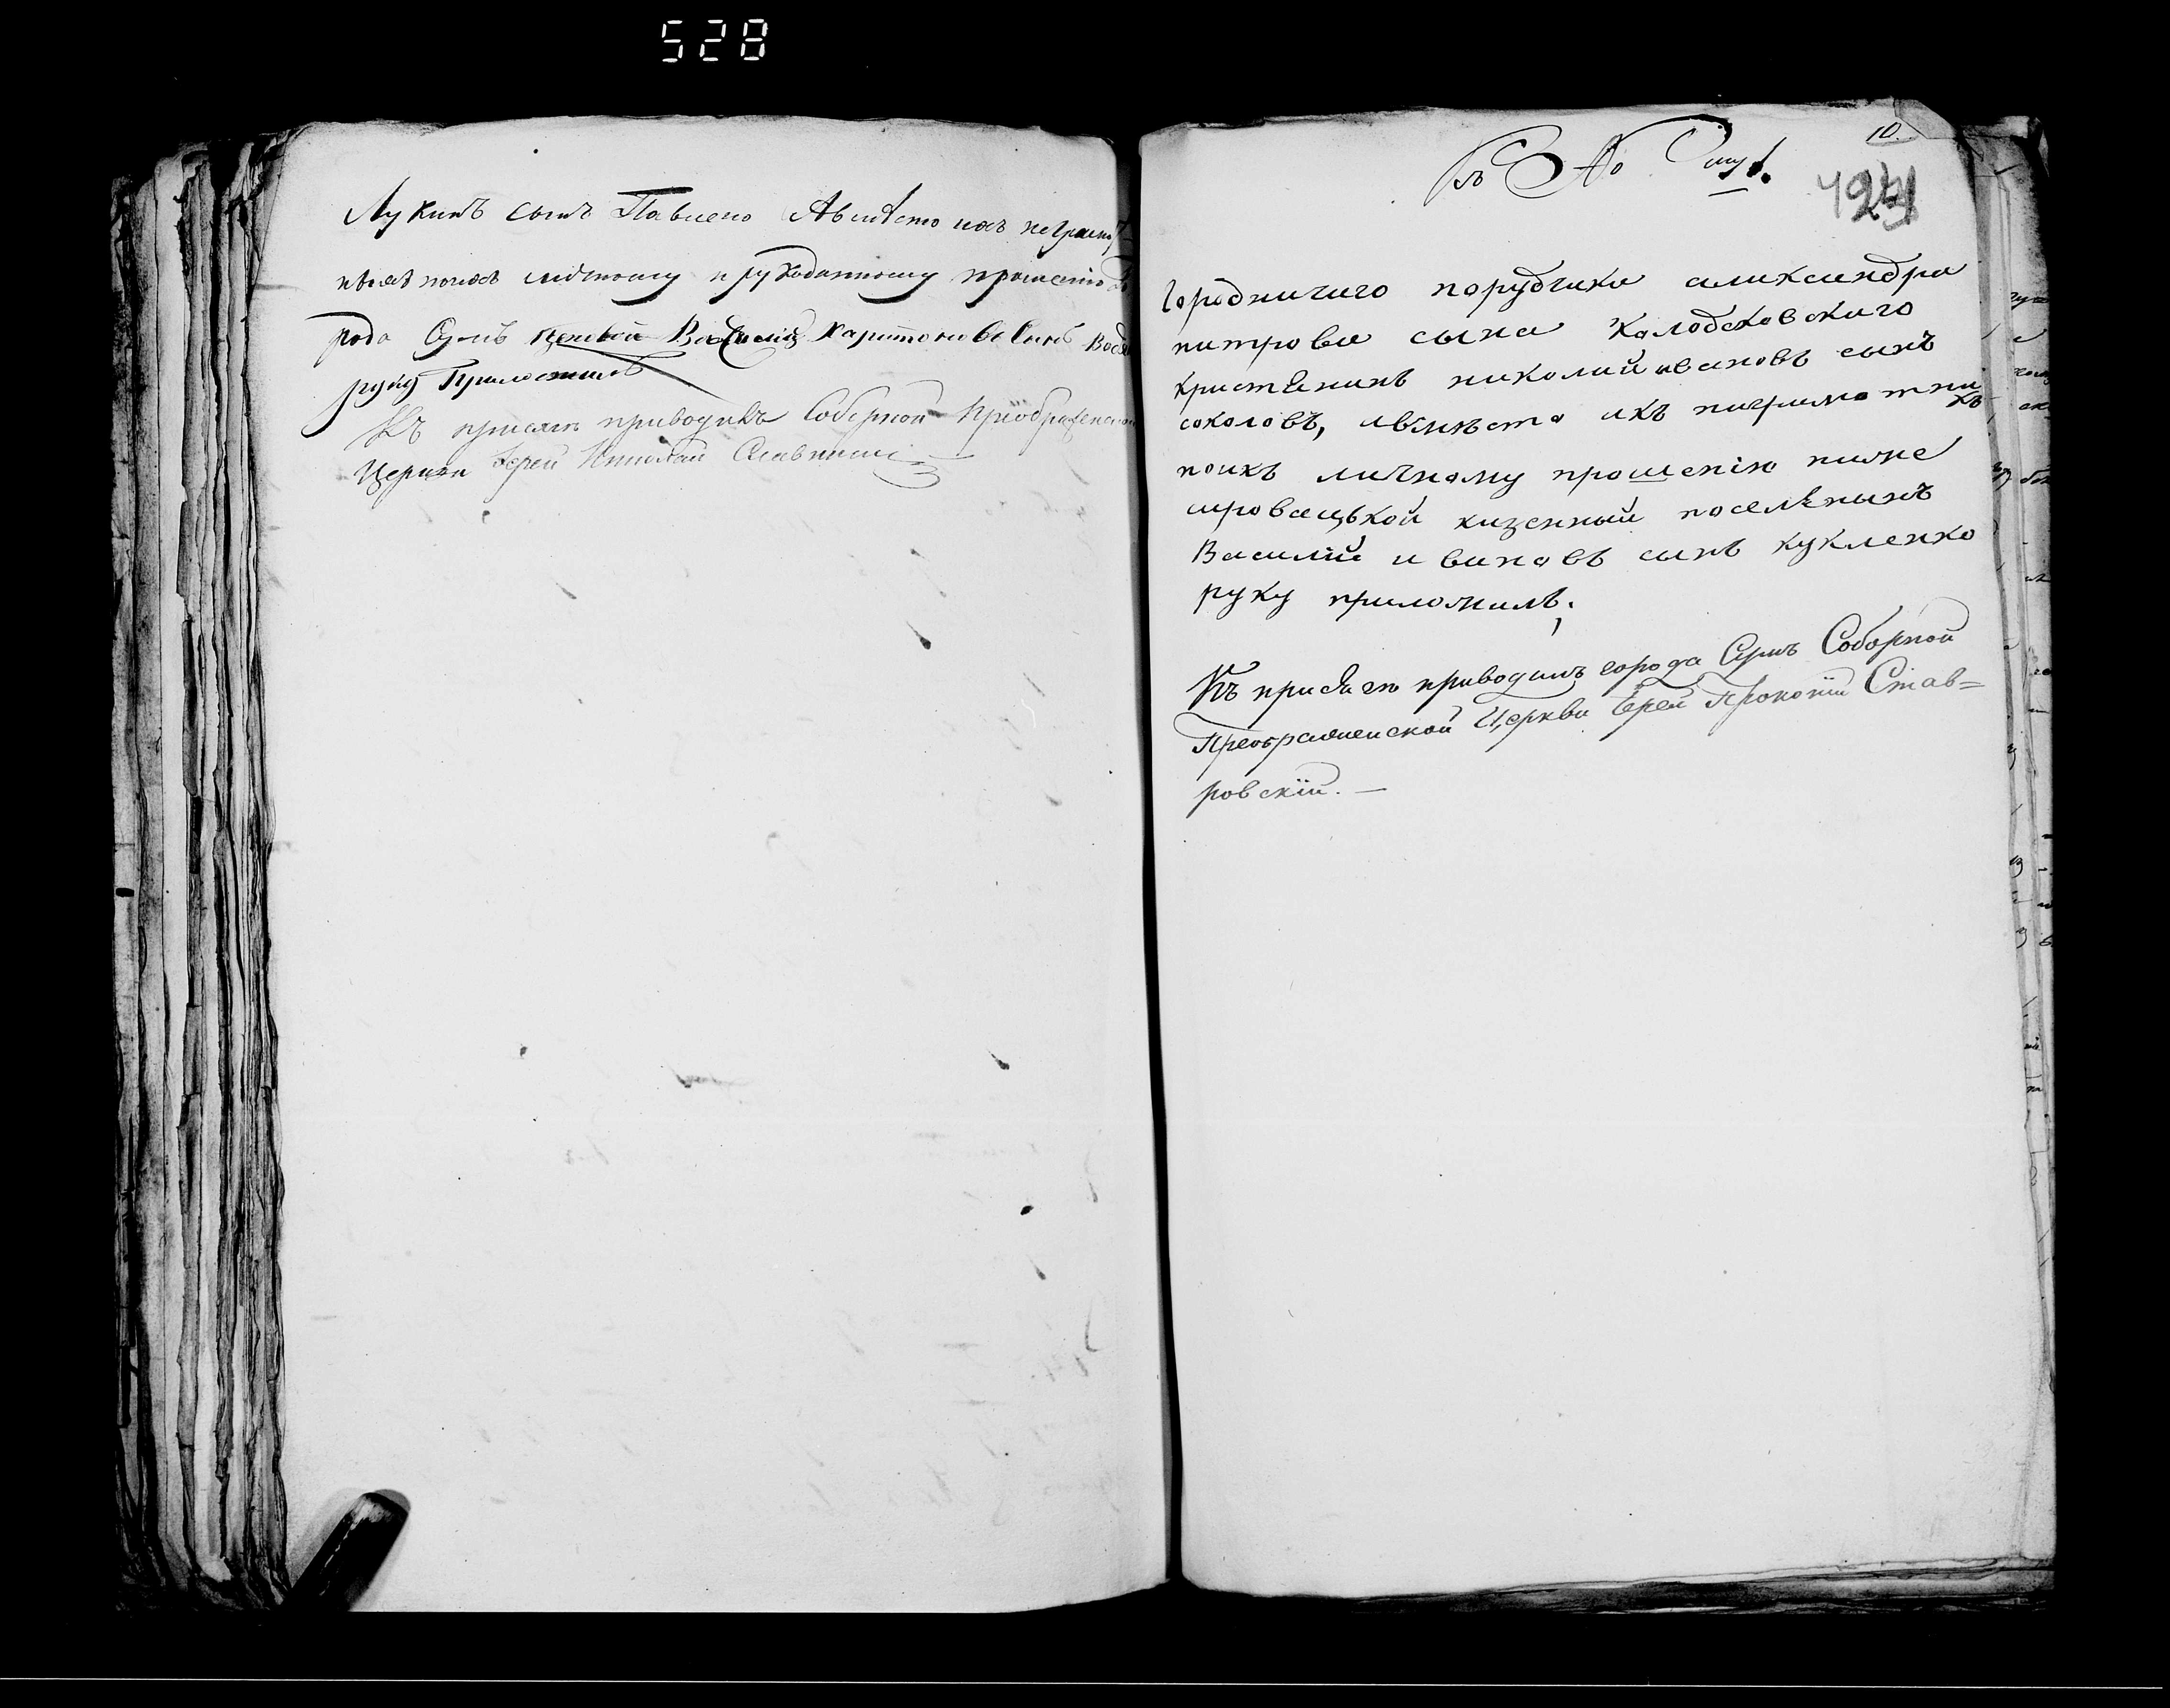 528
Лукинъ сынъ Павленко Авмѣсто ихъ неграмот
ныхъ поихъ личному прукоданному прошению
рода Сумъ цеховой Василий Харитоновъ Сынъ
руку Приложилъ
Къ присягѣ приводилъ Соборной Преображенской
Церкви Іерей Николай
10.
Къ № 1.
городничиго порудчика аликсандра
питрова сына Колодеховскиго
кристянинъ николай ивановъ сынъ
соколовъ, авмѣсто ихъ ниграмотныхъ
поихъ личному прошенію ниже
казенный поселянинъ
Василий ивановъ сынъ кукленко
руку приложилъ;
Къ присягѣ приводилъ города Сумъ Соборной
Преображенской Церкви Іерей Прокопій Став=
ровскій. —